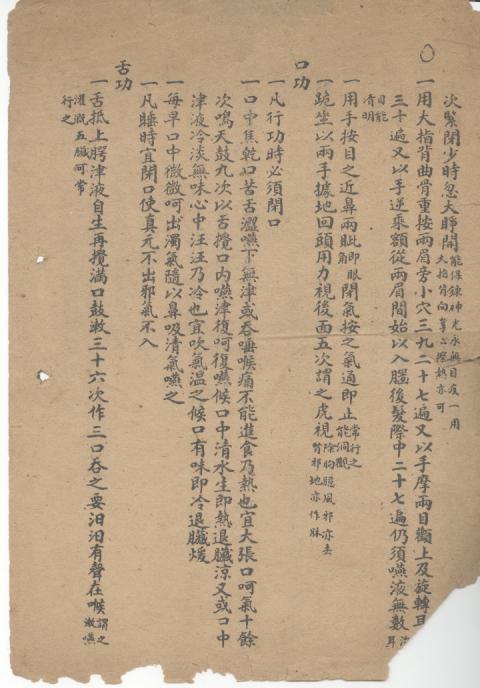 次緊閉少時忽大睜開能保鍊神光永無目疾一用大指背向掌心擦熱亦可
一用大指背曲骨重按兩眉旁小穴三九二十七遍又以手摩兩目顴上及旋轉耳
三十遍又以手逆乘額從兩眉間始以入腦後髮際中二十七遍仍須嚥液無數
目能清明
一用手按目之近鼻兩眦即眼角閉氣按之氣通即止常行之能洞觀
一跪坐以兩手據地回頭用力視後面五次謂之虎視除胸臆風邪亦去腎邪地亦作牀
口功
一凡行功時必須閉口
一口中焦乾口苦舌澀嚥下無津或吞唾喉痛不能進食乃熱也宜大張口呵氣十餘
次鳴天鼓九次以舌攪口內嚥津復呵復嚥候口中清水生即熱退臟涼又或口中
津液冷淡無味心中汪汪乃冷也宜吹氣溫之候口有味即冷退臟煖
一每早口中微微呵出濁氣隨以鼻吸清氣嚥之
一凡睡時宜閉口使真元不出邪氣不入
舌功
一舌抵上腭津液自生再攪滿口鼓漱三十六次作三口吞之要汨汨有聲在喉謂之漱嚥
灌溉五臟可常行之